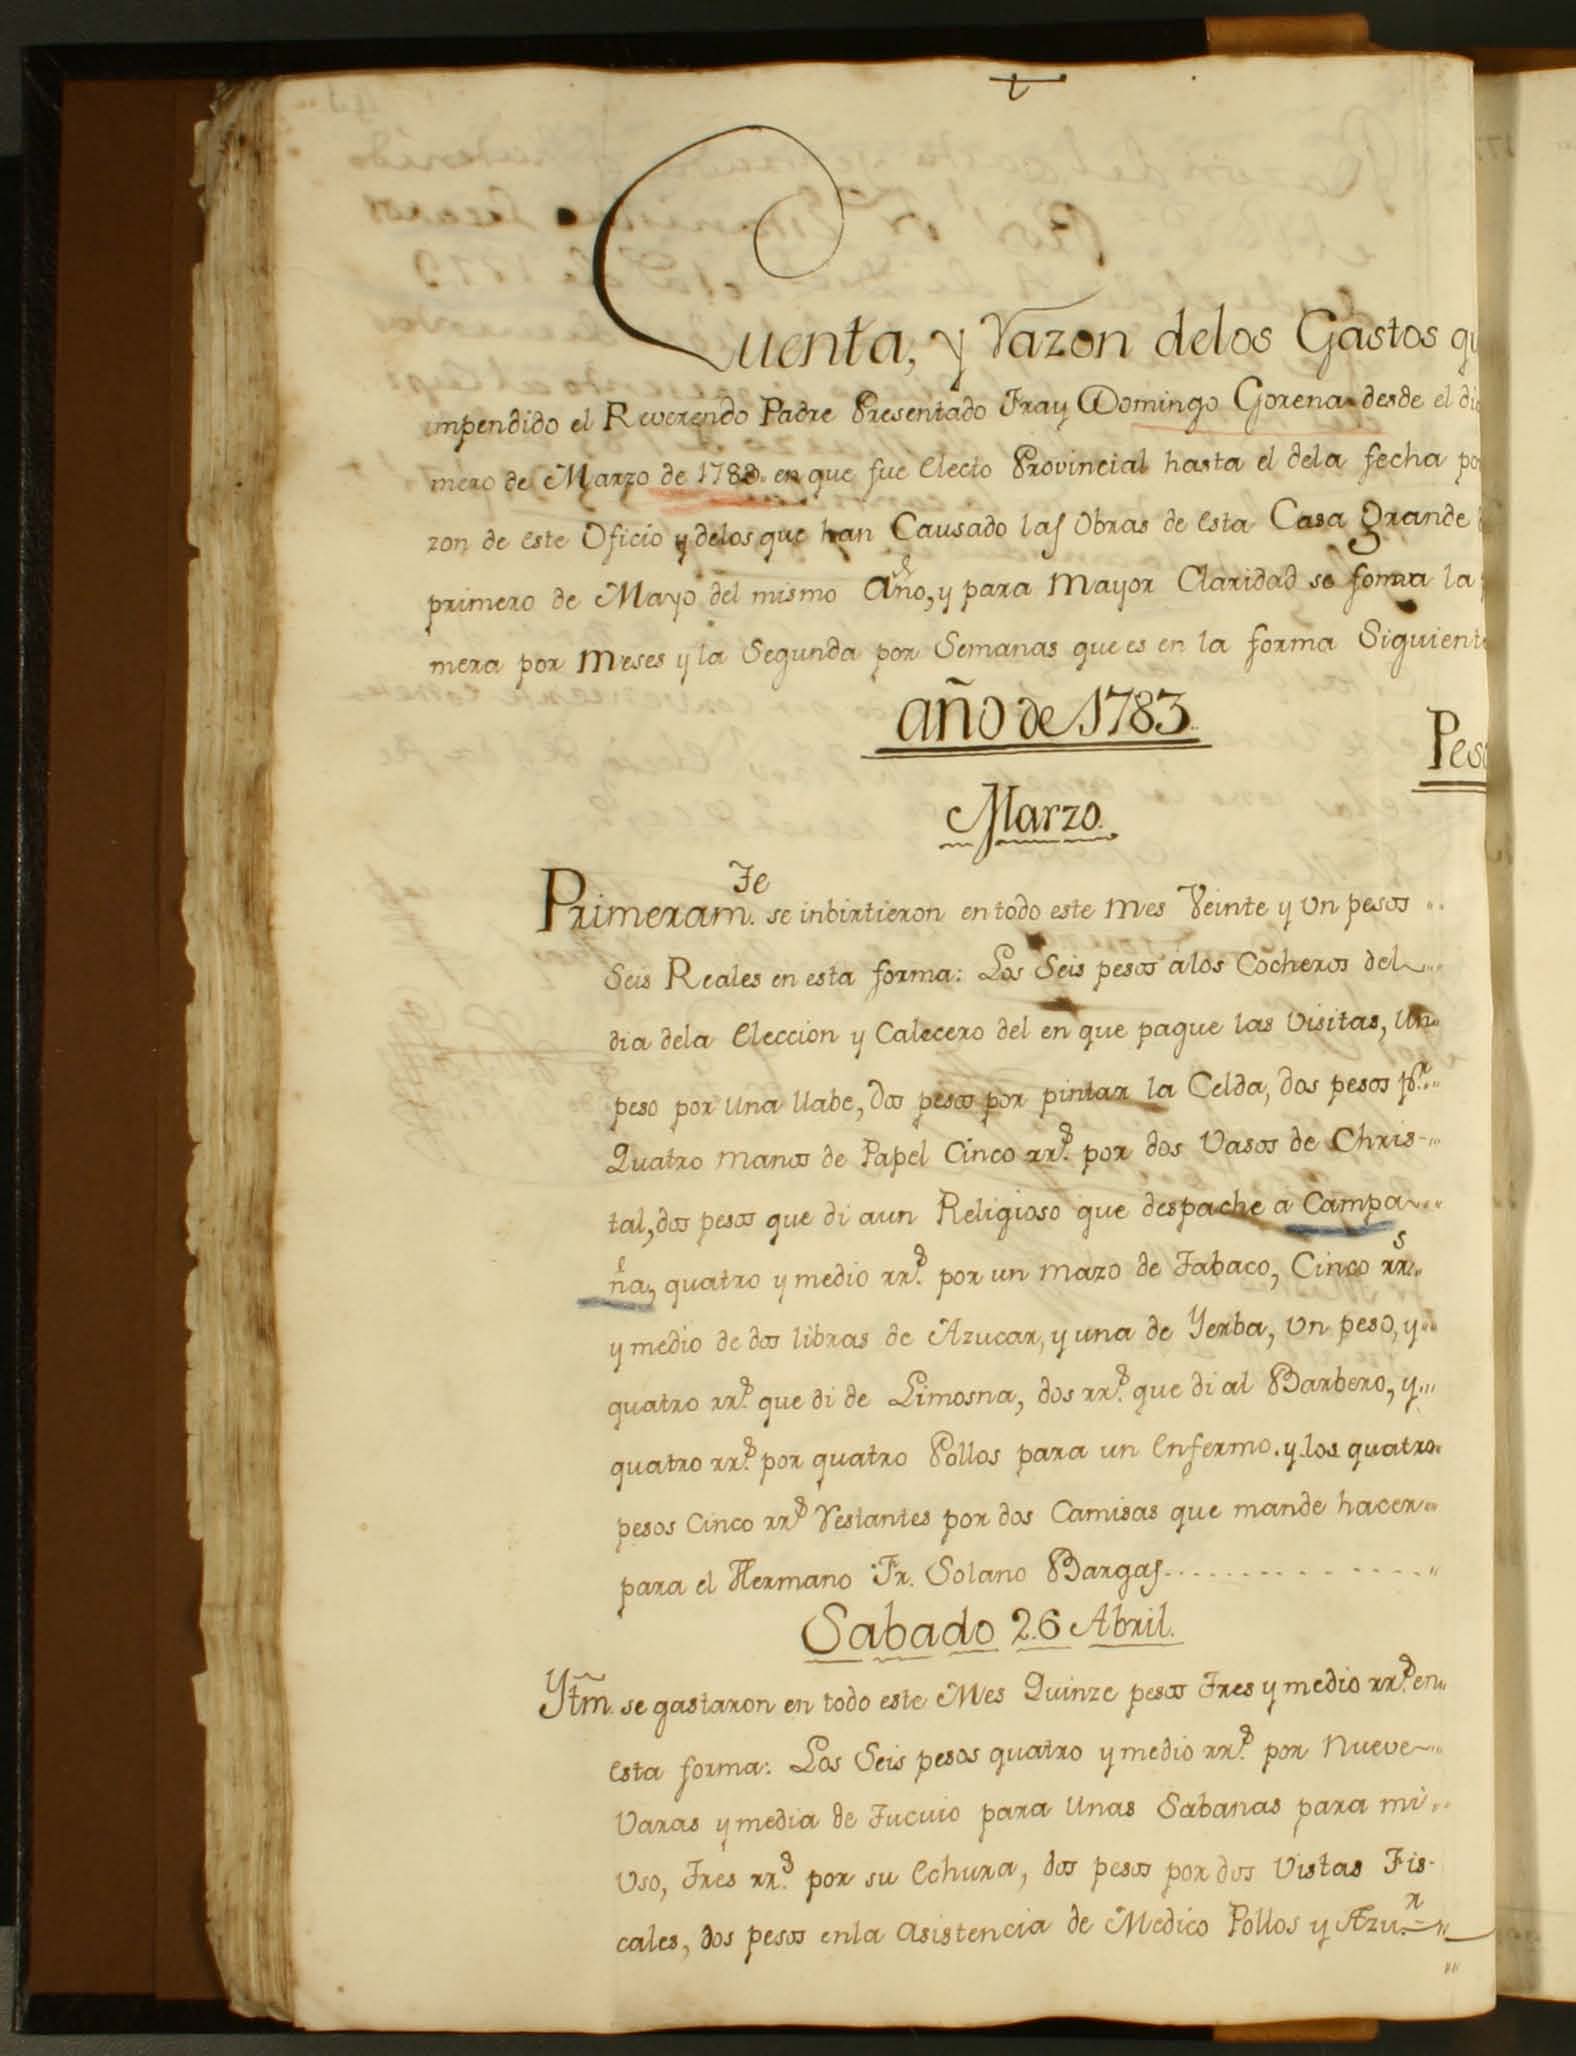 t
Cuenta, y razon delos Gastos qu
impendido el Reverendo Padre Presentado Fray Domingo Gorena desde el di
mero de Marzo de 1783. en que fue electo Provincial hasta el dela fecha po
zon de este Oficio y delos que han Causado las Obras de esta Casa grande
primero de Mayo del mismo año, y para mayor Claridad se forma la
mera por meses y la Segunda por Semanas que es en la forma Siguiente
año de 1783.
Peso
Marzo.
Primeram.te se inbirtieron en todo este mes Veinte y un pesos
Seis Reales en esta forma: Los Seis pesos alos Cocheros del
dia dela eleccion y Calecero del en que pague las Visitas, un
peso por una llabe, dos pesos por pintar la Celda, dos pesos p.r
Quatro manos de Papel Cinco rr.s por dos Vasos de Chris-
tal, dos pesos que di aun Religioso que despache a Campa
ña, quatro y medio rr.s por un mazo de Tabaco, Cinco rr.s
y medio de dos libras de Azucar, y una de Yerba, un peso, y
quatro rr.s que di de Limosna, dos rr.s que di al Barbero, y
quatro rr.s por quatro Pollos para un enfermo. y los quatro
pesos Cinco rr.s restantes por dos Camisas que mande hacer
para el Hermano Fr. Solano Bargas
Sabado 26 Abril.
Ytm. se gastaron en todo este Mes Quinze pesos Tres y medio rr.s en
esta forma: Los Seis pesos quatro y medio rr.s por nueve
Varas y media de Tucuio para unas Sabanas para mi
uso, Tres rr.s por su echura, dos pesos por dos Vistas Fis-
cales, dos pesos enla asistencia de Medico Pollos y Azu.r